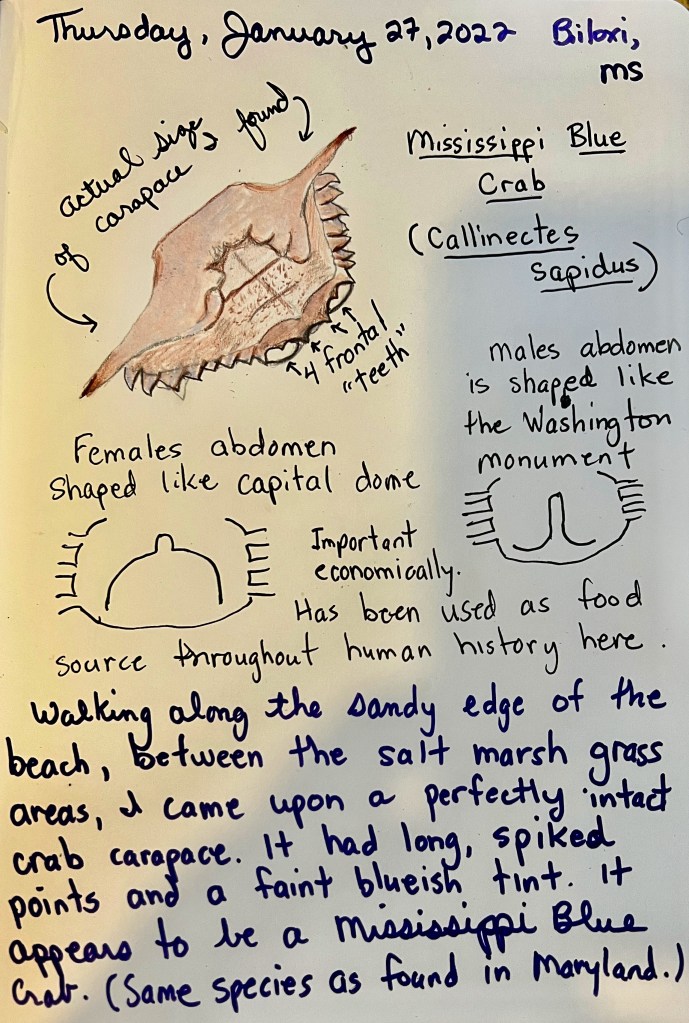 Thursday, January 27, 2022 Biloxi,
MS
actual size, found
of carapace
Mississippi Blue
Crab
(Callinectes
Sapidus)
4 frontal
"teeth"
Males abdomen
is shaped like
the Washington
monument
Females abdomen
Shaped like capital dome
Important
economically.
Has been used as food
source throughout human history here.
Walking along the sandy edge of the
beach, between the salt marsh grass
areas, I came upon a perfectly intact
crab carapace. It had long, spiked
points and a faint blueish tint. It
appears to be a Mississippi Blue
Crab. (Same species as found in Maryland.)